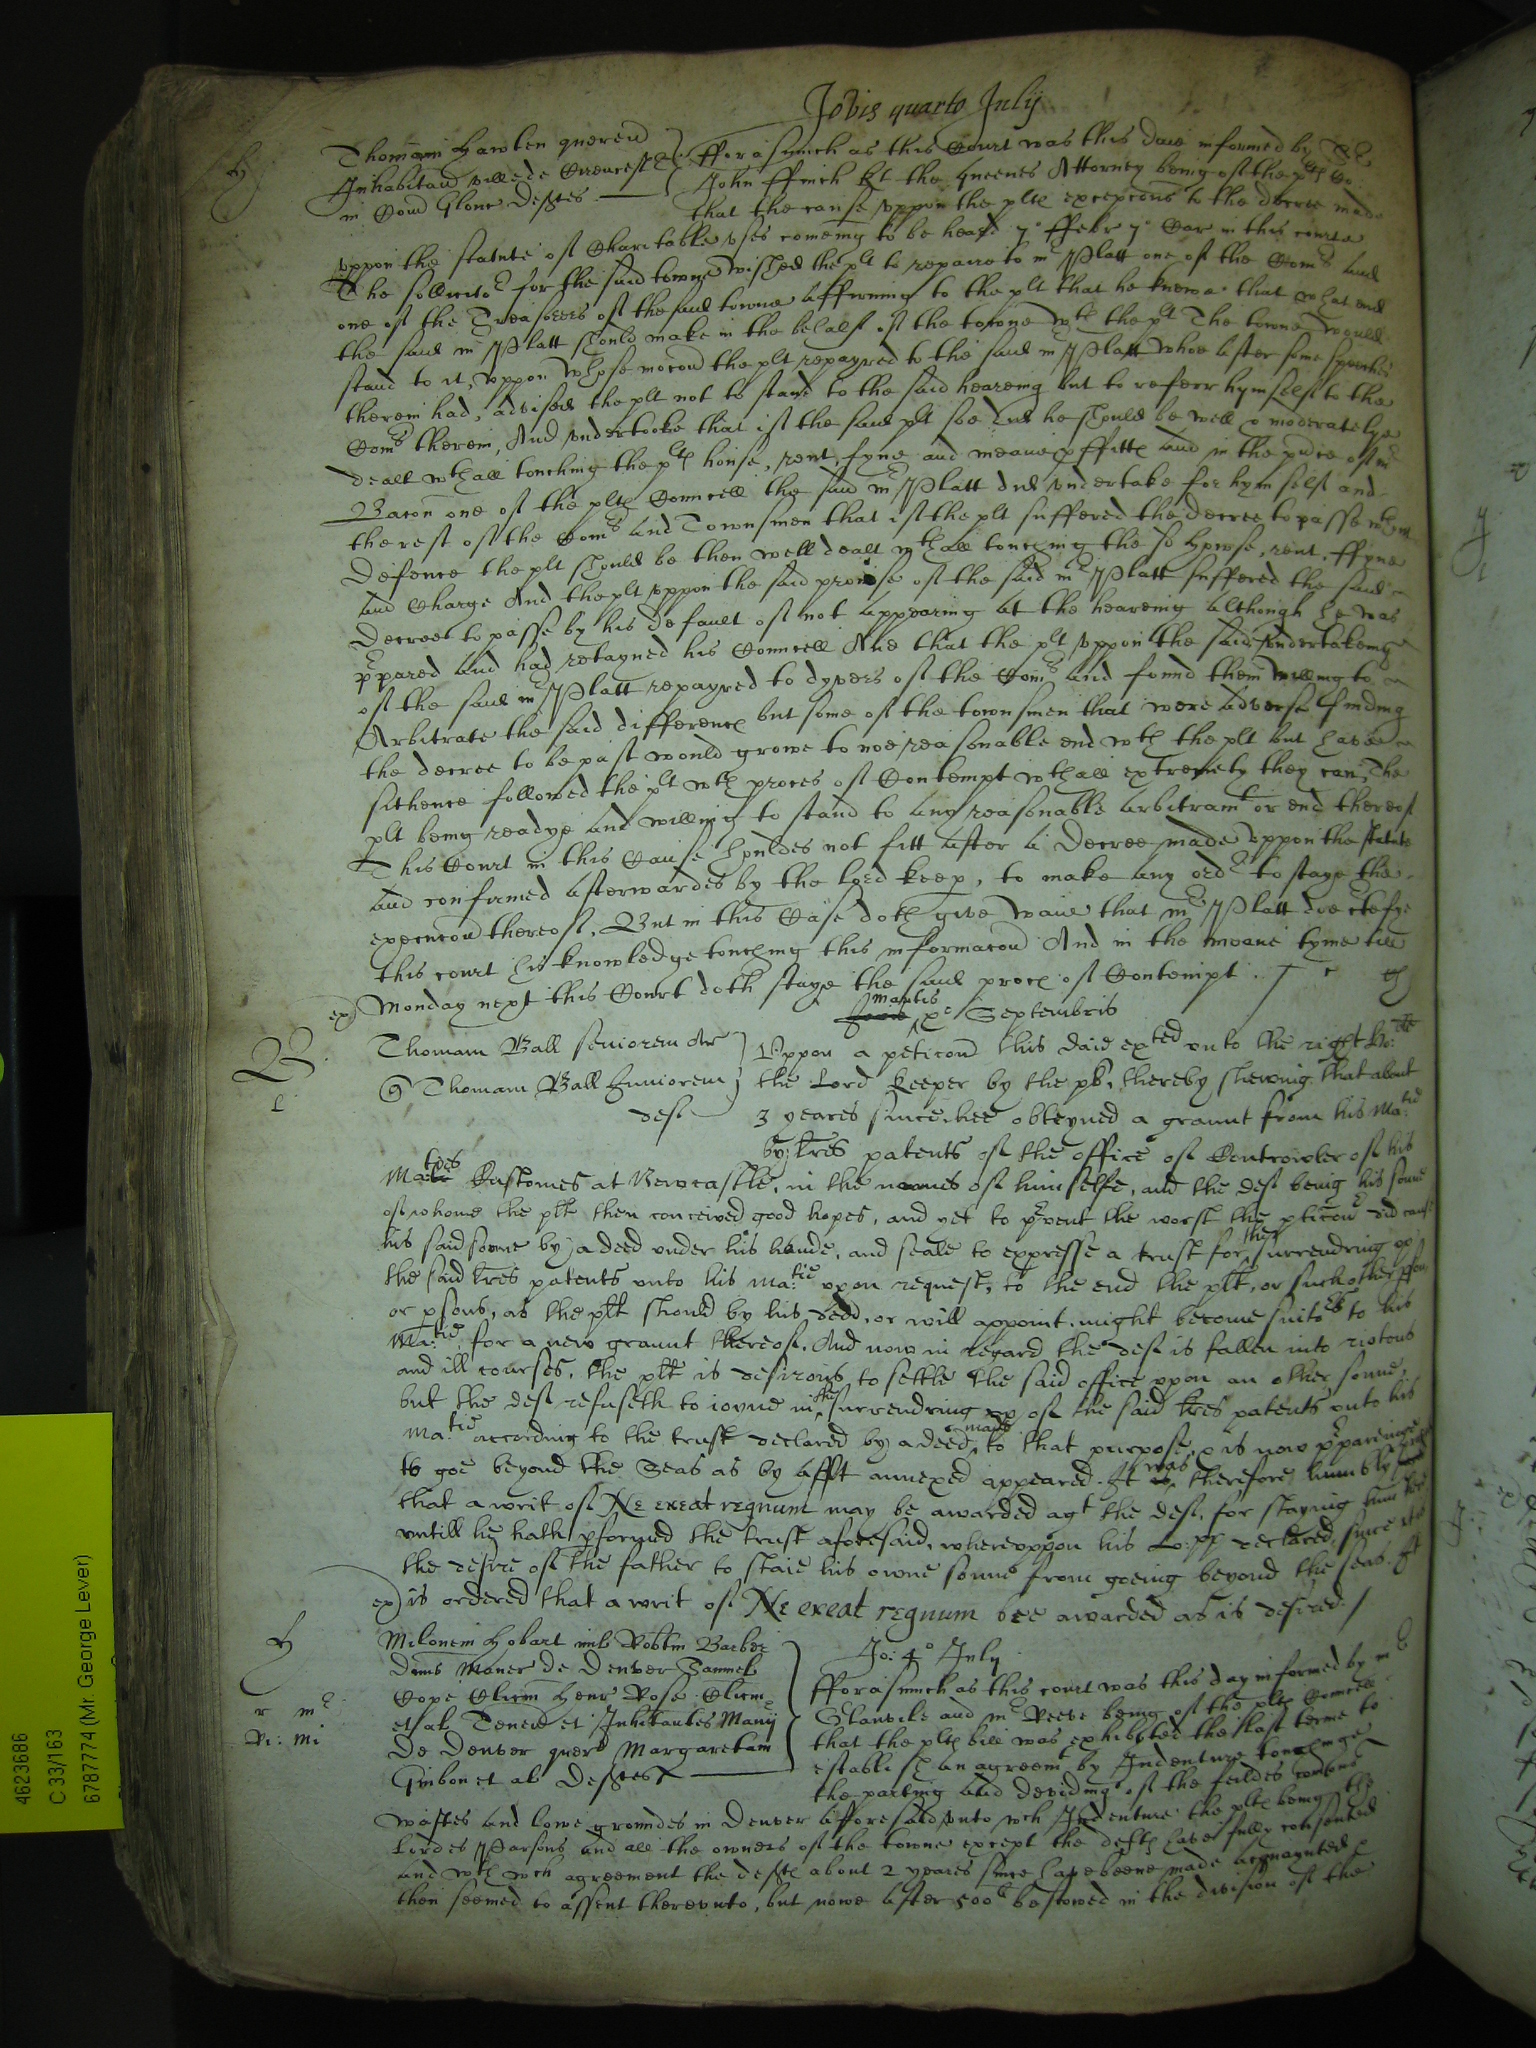 Jovis quarto Julij
H
Thomam Hawten queren
Inhabitan ville de Cirencestr
in Com Glouc Deftes
fforasmuch as this Court was this daie informed by Sr
John ffinch kt the Queenes Attorney being of the plts Co
that the cause vppon the plts excepcons to the decree made
vppon the statute of Charitable vses comeing to be heard 7° ffebr 7° Car in this courte
The sollicitor for the said towne wished the plt to repaire to mr Platt one of the Comrs and
one of the Treasorers of the said towne affirming to the plt that he knewe that what end
the said mr Platt should make in the behalf of the towne wth the plt The towne would
stand to it, vppon whose mocon the plt repayred to the said mr Platt whoe after some speeches
therein had, advised the plt not to stand to the said heareing but to referr hymself to the
Comrs therein, And vndertooke that if the said plt soe did he should be well & moderatelye
dealt wthall touching the plts house, rent, fyne and meane pffitts And in the pnce of mr
Bacon one of the plts Councell the said mr Platt did vndertake for hym self and
the rest of the Comrs and Townsmen that if the plt suffered the decree to passe wthout
defence the plt should be then well dealt wthall touching the sd howse, rent, ffyne
and Charge And the plt vppon the said promise of the said mr Platt suffered the said
Decree to passe by his default of not appearing at the heareing although he was
ppared and had retayned his Councell And that the plt vppon the said vndertakeing
of the said mr Platt repayred to dyvers of the Comrs and found them willing to
Arbitrate the said differences but some of the townsmen that were adverse finding
the decree to be past would growe to noe reasonable end wth the plt but have
sithence followed the plt wth proces of Contempt wthall extremety they can, The
plt being readye and willing to stand to any reasonable arbitramt or end thereof
This Court in this Cause houldes not fitt after a Decree made vppon the statute
and confirmed afterwardes by the lord keep, to make any ordr to staye the
execucon thereof, But in this Case doth give waie that mr Platt doe certefye
this court his knowledge touching this informacon And in the meane tyme till
Monday next this Court doth staye the said proces of Contempt
martis
Jovis xo Septembris
ex
B
Thomam Ball seniorem Ar
Thomam Ball Juniorem
def
Vppon a peticon this daie exted vnto the right ho:ble
the Lord Keeper by the plt, thereby shewing that about
3 yeares since hee obteyned a graunt from his Ma:tie
by lres patents of the office of Controwler of his
Maties Customes at Newcastle, in the names of himselfe, and the def being his sonne
of whome the plt then conceived good hopes, and yet to pvent the worst the peticonr did cause
his said sonne by a deed vnder his hande, and seale to expresse a trust for the surrendring vp
the said lres patents vnto his ma:tie vpon request, to the end the plt, or such other pson
or psons, as the plt should by his deed, or will appoint, might become suitors to his
Ma:tie for a new graunt thereof. And now in regard the def is fallen into riotous
and ill courses, the plt is desirous to settle the said office vpon an other sonne,
but the def refuseth to ioyne in the surrendring vp of the said lres patents vnto his
Ma:tie according to the trust declared by a deed made to that purpose, & is now ppareinge
to goe beyond the Seas as by afft annexed appeared. It was therefore humbly
that a writ of Ne exeat regnum may be awarded agt the def, for staying him
vntill he hath pformed the trust aforesaid, wherevppon his Lo:pp declared, since it is
the desire of the father to staie his owne sonne from goeing beyond the seas. It
ex is ordered that a writ of Ne exeat regnum bee awarded as is desired.
H
r mr
Ri: mi
Milonem Hobart mil Robtm Barber
Dnus Maner de Denver Samuel
Cope Clicm Henr Rose Clicm
et al Tenen et Inhitantes Manij
De Denver quer Margaretam
Guibon et al Deftes
Jo: 4° July
fforasmuch as this court was this day informed by mr
Glanvile and mr Reeve being of the plts Councell
that the plts bill was exhibited the last terme to
establish an agreemt by Indenture toucheinge
the parting and devideing of the feildes comons
wastes and lowe groundes in Denver afforesaid vnto wch Indenture the plts being the
Lordes Parsons and all the owners of the towne except the defts have fully consented
and wth wch agreement the defts about 2 yeares since have beene made acquaynted &
then seemed to assent therevnto, but nowe after 500li bestowed in the division of the
4623686
C 33/163
6787774 (Mr. George Lever)